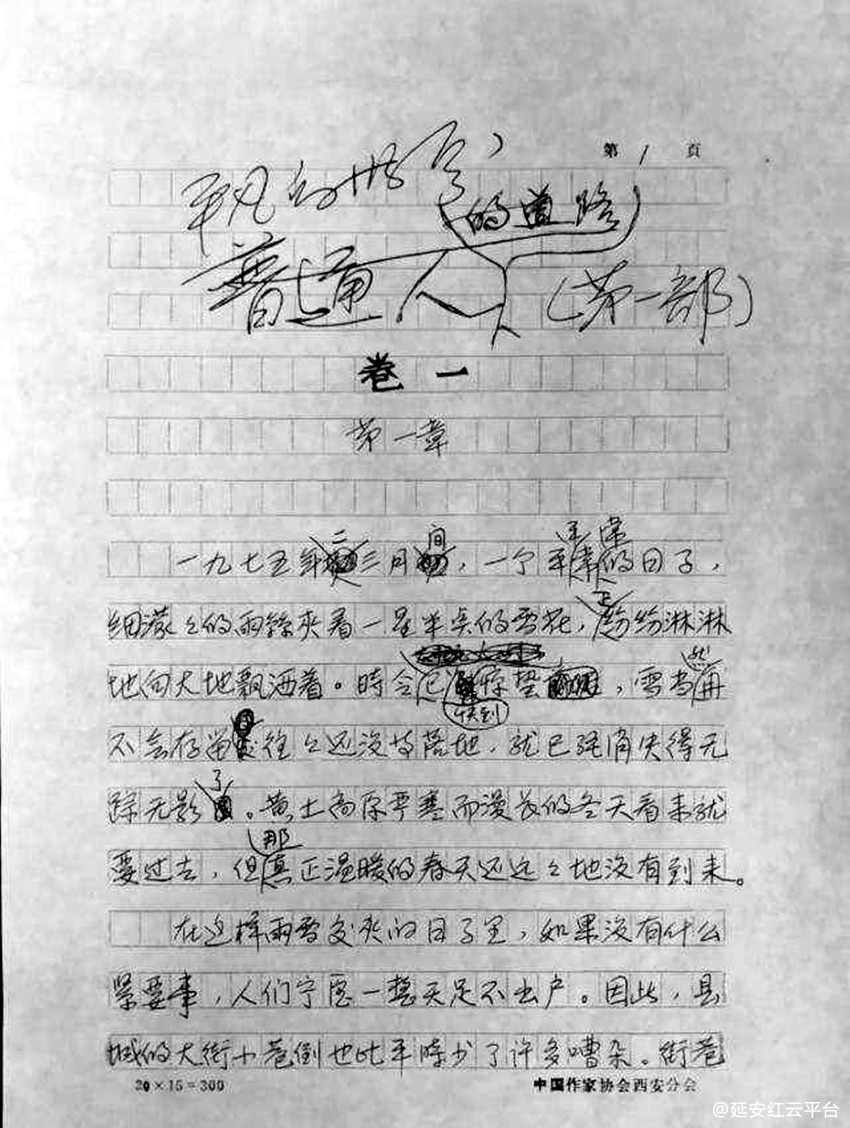 第 1 頁
平凡的世界
(的道路)
普通人 (第一部)
卷一
第一章
一九七五年二三月间，一个平平常常的日子，
细濛々的雨絲夹着一星半点的雪花，正纷纷淋淋
地向大地飘洒着。時令已快到惊蛰，雪当然再
不会存留，往々还没等落地，就已经消失得无
踪无影了。黄土高原严寒而漫长的冬天看来就
要过去，但那真正温暖的春天还远々地没有到来。
在这样雨雪交夹的日子里，如果没有什么
紧要事，人们宁愿一整天足不出户。因此，县
城的大街小巷倒也比平時少了许多嘈杂。街巷
20×15=300 中国作家协会西安分会
@延安红云平台